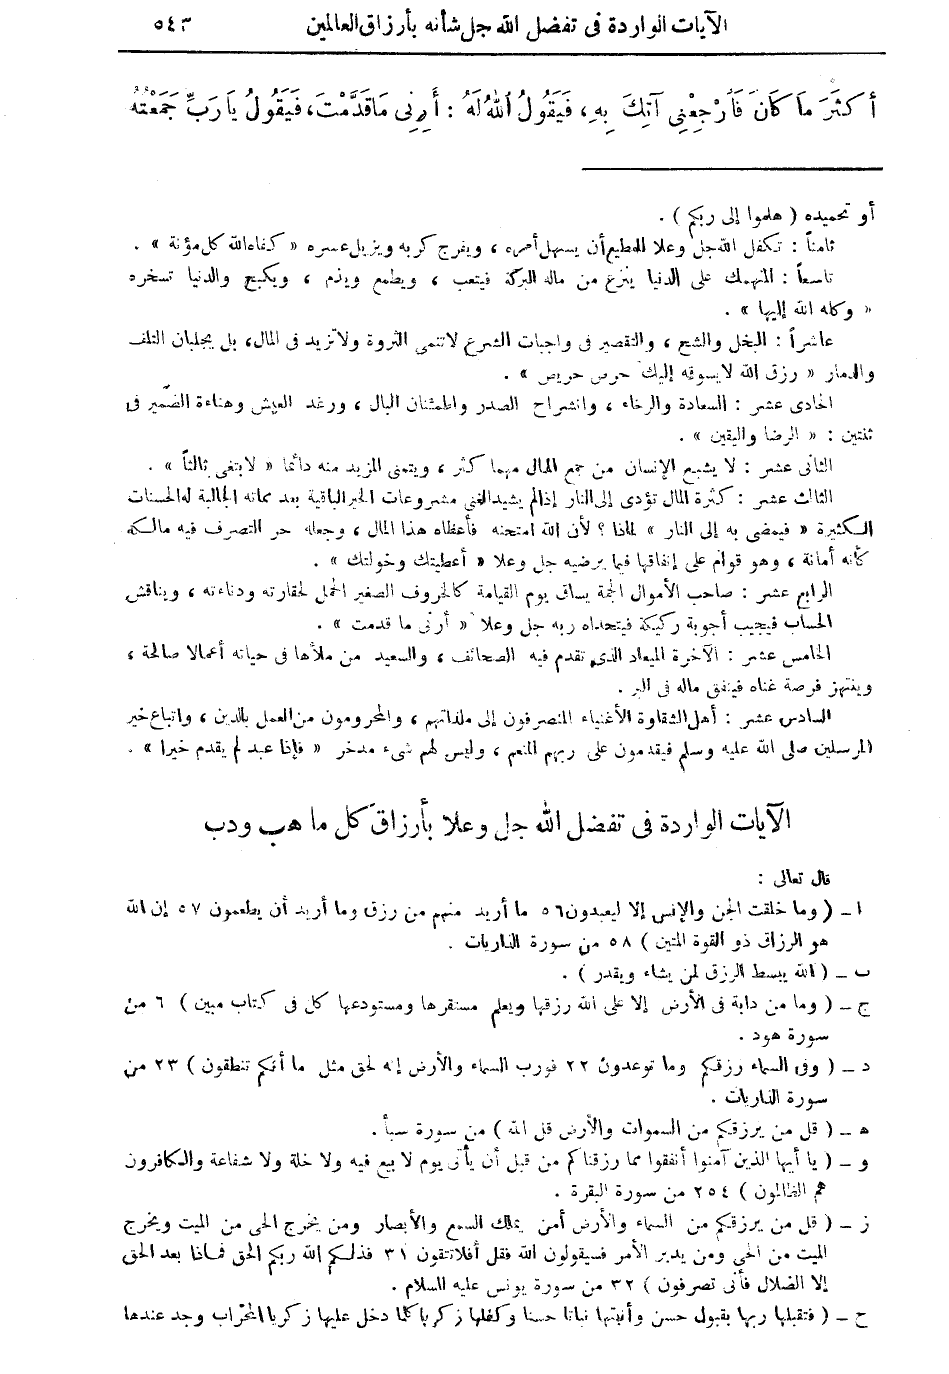 الآيات الواردة فى تفضل الله جل شأنه بأرزاق العالمين ٥٤٣
أَكْثَرَ مَا كَانَ فَارْجِعْنِى آتِكَ بِهِ، فَيَقُولُ اللهُ لَهُ : أَرِنِى مَا قَدَّمْتَ، فَيَقُولُ يَا رَبِّ جَمَعْتُهُ
أو تحميده ( هلموا إلى ربكم ) .
ثامناً : تكفل الله جل وعلا للمطيع أن يسهل أمره ، ويفرج كربه ويزيل عسره « كفاه الله كل مؤنة » .
تاسعاً : المنهمك على الدنيا ينزع من ماله البركة فيتعب ، ويطمع ويذم ، ويكبح والدنيا تسخره
« وكله الله إليها » .
عاشراً : البخل والشح ، والتقصير فى واجبات الشرع لا تنمى الثروة ولا تزيد فى المال، بل يجلبان التلف
والدمار « رزق الله لا يسوقه إليك حرص حريص » .
الحادى عشر : السعادة والرخاء ، وانشراح الصدر واطمئنان البال ، ورغد العيش وهناءة الضمير فى
ثنتين : « الرضا واليقين » .
الثانى عشر : لا يشبع الإنسان من جمع المال مهما كثر ، ويتمنى المزيد منه دائما « لابتغى ثالثاً » .
الثالث عشر : كثرة المال تؤدى إلى النار إذا لم يشيد الغنى مشروعات الخير الباقية بعد مماته الجالبة له الحسنات
الكثيرة « فيمضى به إلى النار » لماذا ؟ لأن الله امتحنه فأعطاه هذا المال ، وجعله حر التصرف فيه مالكه
كأنه أمانة ، وهو قوام على إنفاقها فيما يرضيه جل وعلا « أعطيتك وخولتك » .
الرابع عشر : صاحب الأموال الجمة يساق يوم القيامة كالخروف الصغير الحمل لحقارته ودناءته ، ويناقش
الحساب فيجيب أجوبة ركيكة فيتحداه ربه جل وعلا « أرنى ما قدمت » .
الخامس عشر : الآخرة الميعاد الذى تقدم فيه الصحائف ، والسعيد من ملأها فى حياته أعمالا صالحة ،
وينتهز فرصة غناه فينفق ماله فى البر .
السادس عشر : أهل الشقاوة الأغنياء المنصرفون إلى ملذاتهم ، والمحرومون من العمل بالدين ، واتباع خير
المرسلين صلى الله عليه وسلم فيقدمون على ربهم المنعم ، وليس لهم شىء مدخر « فإذا عبد لم يقدم خيرا » .
الآيات الواردة فى تفضل الله جل وعلا بأرزاق كل ما هب ودب
قال تعالى :
ا ــ ( وما خلقت الجن والإنس إلا ليعبدون ٥٦ ما أريد منهم من رزق وما أريد أن يطعمون ٥٧ إن الله
هو الرزاق ذو القوة المتين ) ٥٨ من سورة الذاريات .
ب ــ ( الله يبسط الرزق لمن يشاء ويقدر ) .
ج ــ ( وما من دابة فى الأرض إلا على الله رزقها ويعلم مستقرها ومستودعها كل فى كتاب مبين ) ٦ من
سورة هود .
د ــ ( وفى السماء رزقكم وما توعدون ٢٢ فورب السماء والأرض إنه لحق مثل ما أنكم تنطقون ) ٢٣ من
سورة الذاريات .
هـ ــ ( قل من يرزقكم من السموات والأرض قل الله ) من سورة سبأ .
و ــ ( يا أيها الذين آمنوا أنفقوا مما رزقناكم من قبل أن يأتى يوم لا بيع فيه ولا خلة ولا شفاعة والكافرون
هم الظالمون ) ٢٥٤ من سورة البقرة .
ز ــ ( قل من يرزقكم من السماء والأرض أمن يملك السمع والأبصار ومن يخرج الحى من الميت ويخرج
الميت من الحى ومن يدبر الأمر فسيقولون الله فقل أفلا تتقون ٣١ فذلكم الله ربكم الحق فماذا بعد الحق
إلا الضلال فأنى تصرفون ) ٣٢ من سورة يونس عليه السلام .
ح ــ ( فتقبلها ربها بقبول حسن وأنبتها نباتا حسنا وكفلها زكريا كلما دخل عليها زكريا المحراب وجد عندها